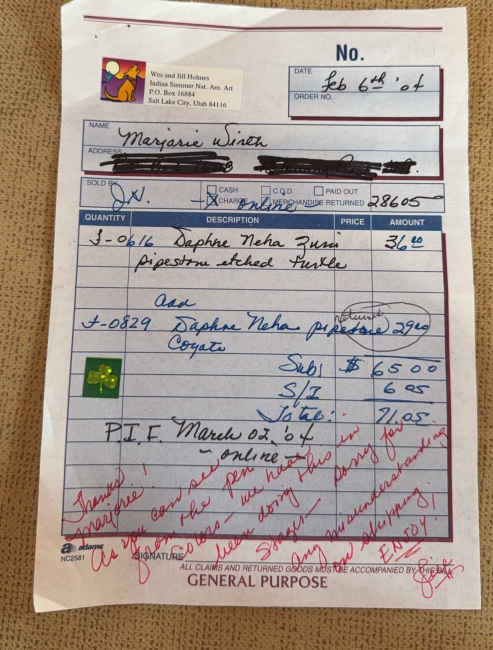 No.
Wes and Jill Holmes
Indian Summer Nat. Am. Art
P.O. Box 16884
Salt Lake City, Utah 84116
DATE
Feb 6th '04
ORDER NO.
NAME
Marjorie Wirth
ADDRESS
SOLD BY
J.H.
CASH C.O.D PAID OUT
X CHARGE MERCHANDISE RETURNED 28605
- online -
QUANTITY DESCRIPTION PRICE AMOUNT
F-0616 Daphne Neha Zuni 36.00
pipestone etched turtle
Add
F-0829 Daphne Neha pipestone 29.00
Coyote
Sub: $ 65 00
S/I 6 05
Total: 71.05
P.I.F. March 02, '04
- online -
Thanks!
Marjorie!
As you can see
from the pen
colors - we have
been doing this in
stages - Sorry for
any misunderstanding
on shipping!
ENJOY!
adams
NC2581
SIGNATURE
ALL CLAIMS AND RETURNED GOODS MUST BE ACCOMPANIED BY THIS BILL
GENERAL PURPOSE